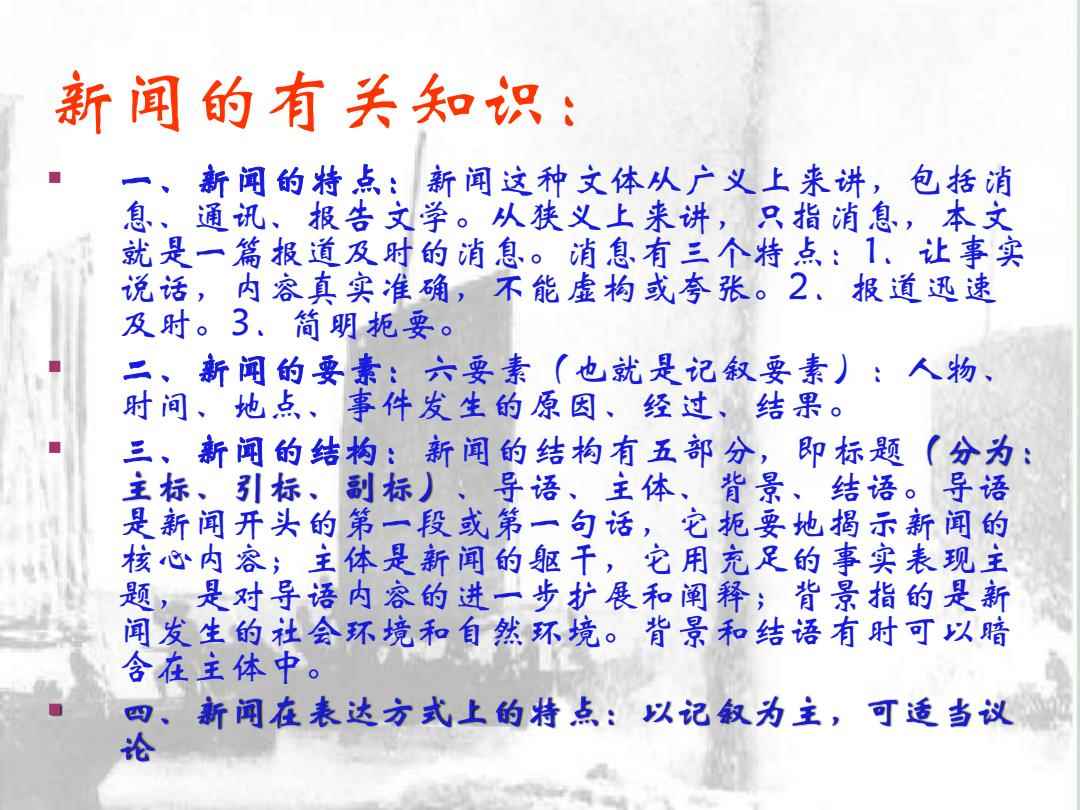 新闻的有关知识：
一、新闻的特点：新闻这种文体从广义上来讲，包括消
息、通讯、报告文学。从狭义上来讲，只指消息，本文
就是一篇报道及时的消息。消息有三个特点：1、让事实
说话，内容真实准确，不能虚构或夸张。2、报道迅速
及时。3、简明扼要。
二、新闻的要素：六要素（也就是记叙要素）：人物、
时间、地点、事件发生的原因、经过、结果。
三、新闻的结构：新闻的结构有五部分，即标题（分为：
主标、引标、副标）、导语、主体、背景、结语。导语
是新闻开头的第一段或第一句话，它扼要地揭示新闻的
核心内容；主体是新闻的躯干，它用充足的事实表现主
题，是对导语内容的进一步扩展和阐释；背景指的是新
闻发生的社会环境和自然环境。背景和结语有时可以暗
含在主体中。
四、新闻在表达方式上的特点：以记叙为主，可适当议
论